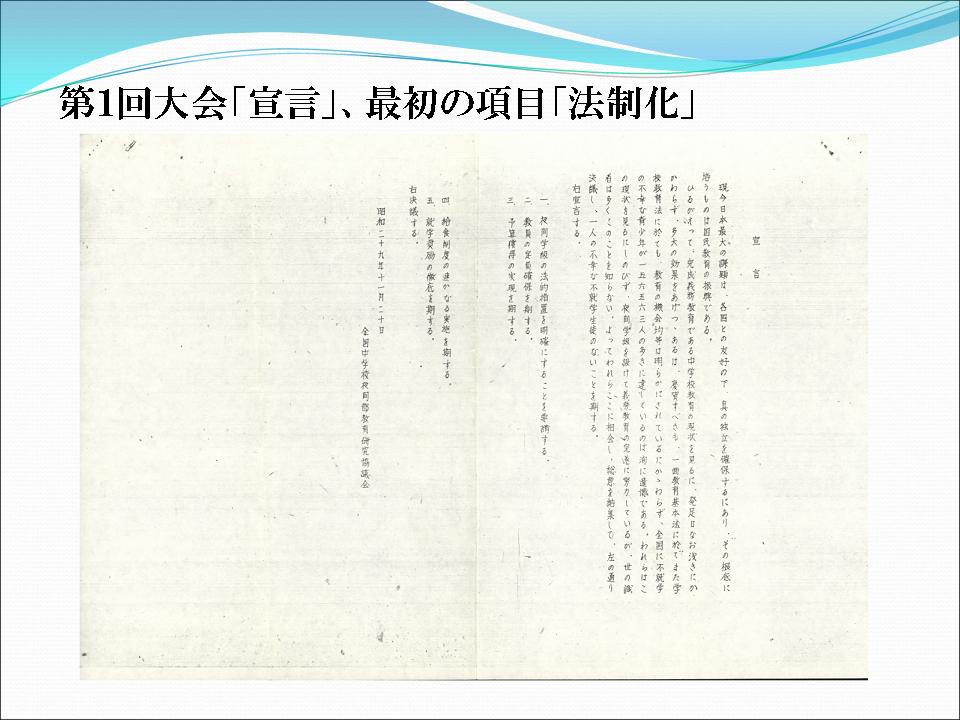 第1回大会「宣言」、最初の項目「法制化」
宣言
現今日本最大の課題は、各国との友好の下 真の独立を確保するにあり、その根底に
培うものは国民教育の振興である。
ひるがえって、完成義務教育である中学校教育の現状を見るに 発足日なお浅きにか
かわらず、多大の効果をあげつゝあるは、慶賀すべきも、一面教育基本法に於てまた学
校教育法に於ても、教育の機会均等は明らかにされているにかゝわらず、全国に不就学
の不幸な青少年が一五六五六三人の多きに達しているのは洵に遺憾である。われらはこ
の現状を見るにしのびず、夜間学級を設けて義務教育の完遂に努力しているが、世の識
者は多くこのことを知らない。よってわれらここに相会し、総意を結集して、左の通り
決議し、一人の不幸な不就学生徒のないことを期する。
右宣言する。
一、夜間学級の法的措置を明確にすることを要請する。
二、教員の定員確保を期する。
三、予算獲得の実現を期する。
四、給食制度の速かなる実施を期する。
五、就学奨励の徹底を期する。
右決議する。
昭和二十九年十一月二十日
全国中学校夜間部教育研究協議会